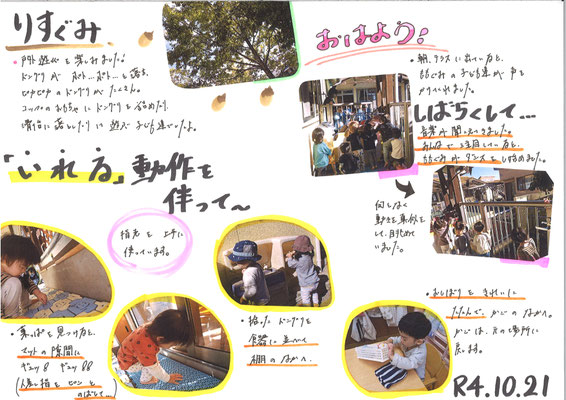 りすぐみ
・戸外遊びを楽しみました!
ドングリが ポト…ポト…と落ち、
ドングリが たくさん。
コップのおもちゃに ドングリを
「いれる」動作を
伴って〜
おはよう!
・朝、テラスに出ていると、
ももぐみの子ども達が 声を
かけてくれました。
しばらくして…
音楽が聞こえてきました。
みんなで 注目していると、
ももぐみが ダンスをし始めました。
何しなく
動きを真似を
して、眺めて
いました。
指先を 上手に
使っています。
・葉っぱを見つけると、
マットの隙間に
ギュッ! ギュッ!!
(人差し指を ピンと
のばして…)
・拾った ドングリを
容器に 並べて
棚のなかへ
・おしぼりを きれいに
たたんで、かごのなかへ。
かごは、元の場所に
戻します。
R4.10.21